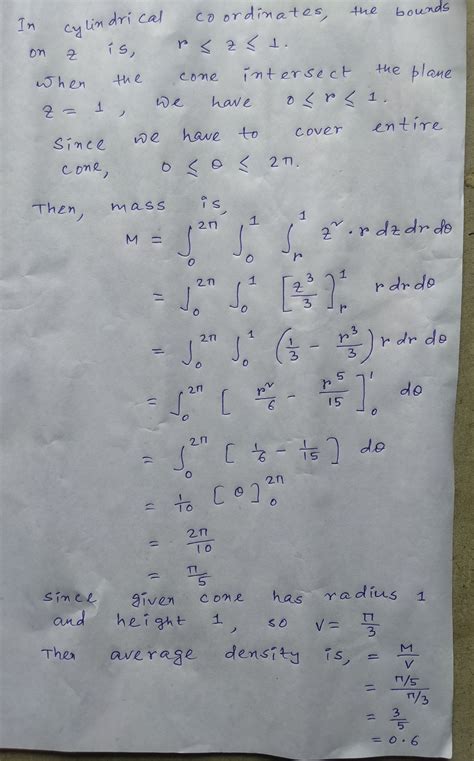 In cylindrical coordinates, the bounds
on z is, r ≤ z ≤ 1.
When the cone intersect the plane
z = 1, we have 0 ≤ r ≤ 1.
Since we have to cover entire
cone, 0 ≤ θ ≤ 2π.
Then, mass is,
M = ∫₀^{2π} ∫₀^1 ∫_r^1 z² · r dz dr dθ
= ∫₀^{2π} ∫₀^1 [z³/3]_r^1 r dr dθ
= ∫₀^{2π} ∫₀^1 (1/3 - r³/3) r dr dθ
= ∫₀^{2π} [r²/6 - r⁵/15]₀^1 dθ
= ∫₀^{2π} [1/6 - 1/15] dθ
= 1/10 [θ]₀^{2π}
= 2π/10
= π/5
Since given cone has radius 1
and height 1, so V = π/3
Then average density is, = M/V
= π/5 / π/3
= 3/5
= 0.6